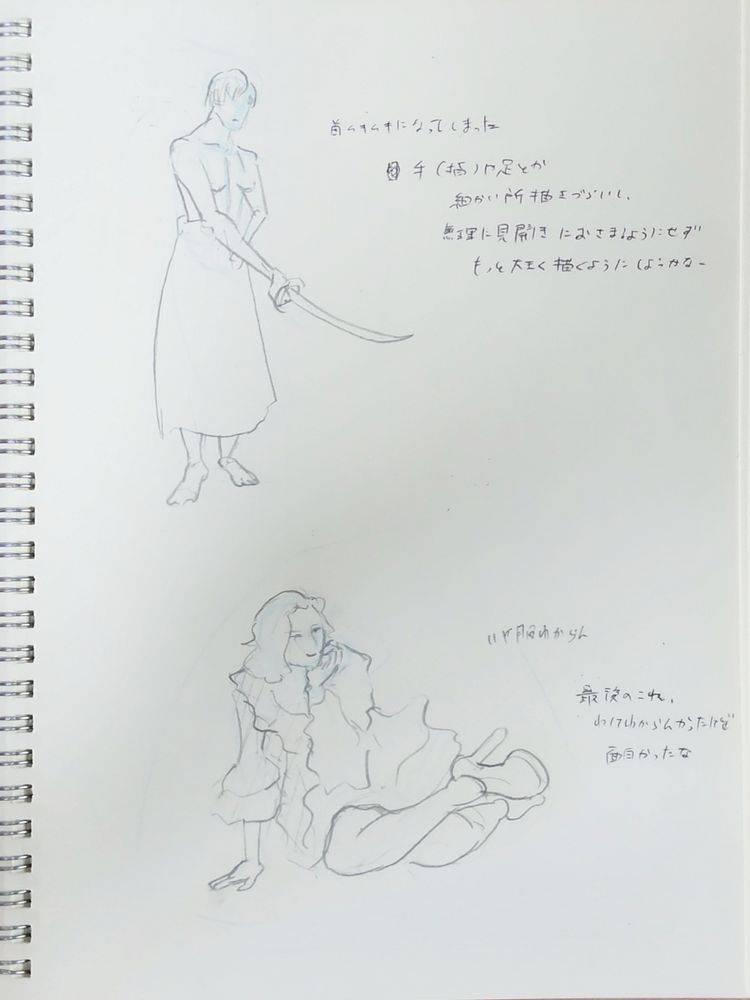 首ムキムキになってしまった
手(指)や足とか
細かい所描きづらいし、
無理に見開きにおさまるようにせず
もっと大きく描くようにしようかなー
いや服わからん
最後のこれ、
わけわからんかったけど
面白かったな